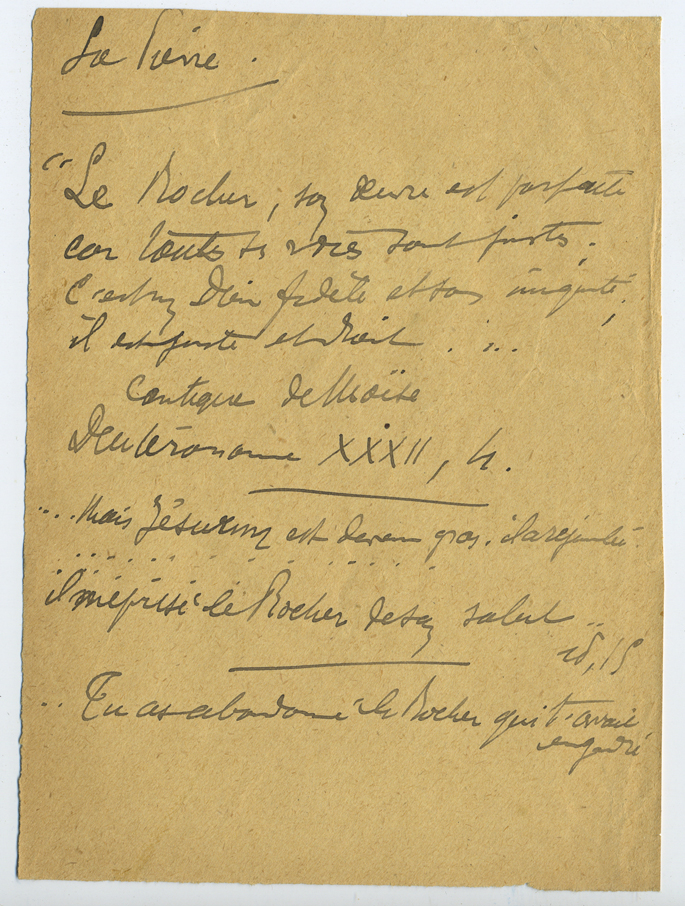 La Pierre.
"Le Rocher, son œuvre est parfaite
car toutes ses voies sont justes,
C'est un Dieu fidèle et sans iniquité,
il est juste et droit . ...
Cantique de Moïse
Deutéronome XXXII, 4.
... Mais Jésurun est devenu gras. il a regimbé
. . . . . . . . . . . . . .
il méprisé le Rocher de son salut ..
id, 15
.. Tu as abandonné le Rocher qui t'avait
engendré